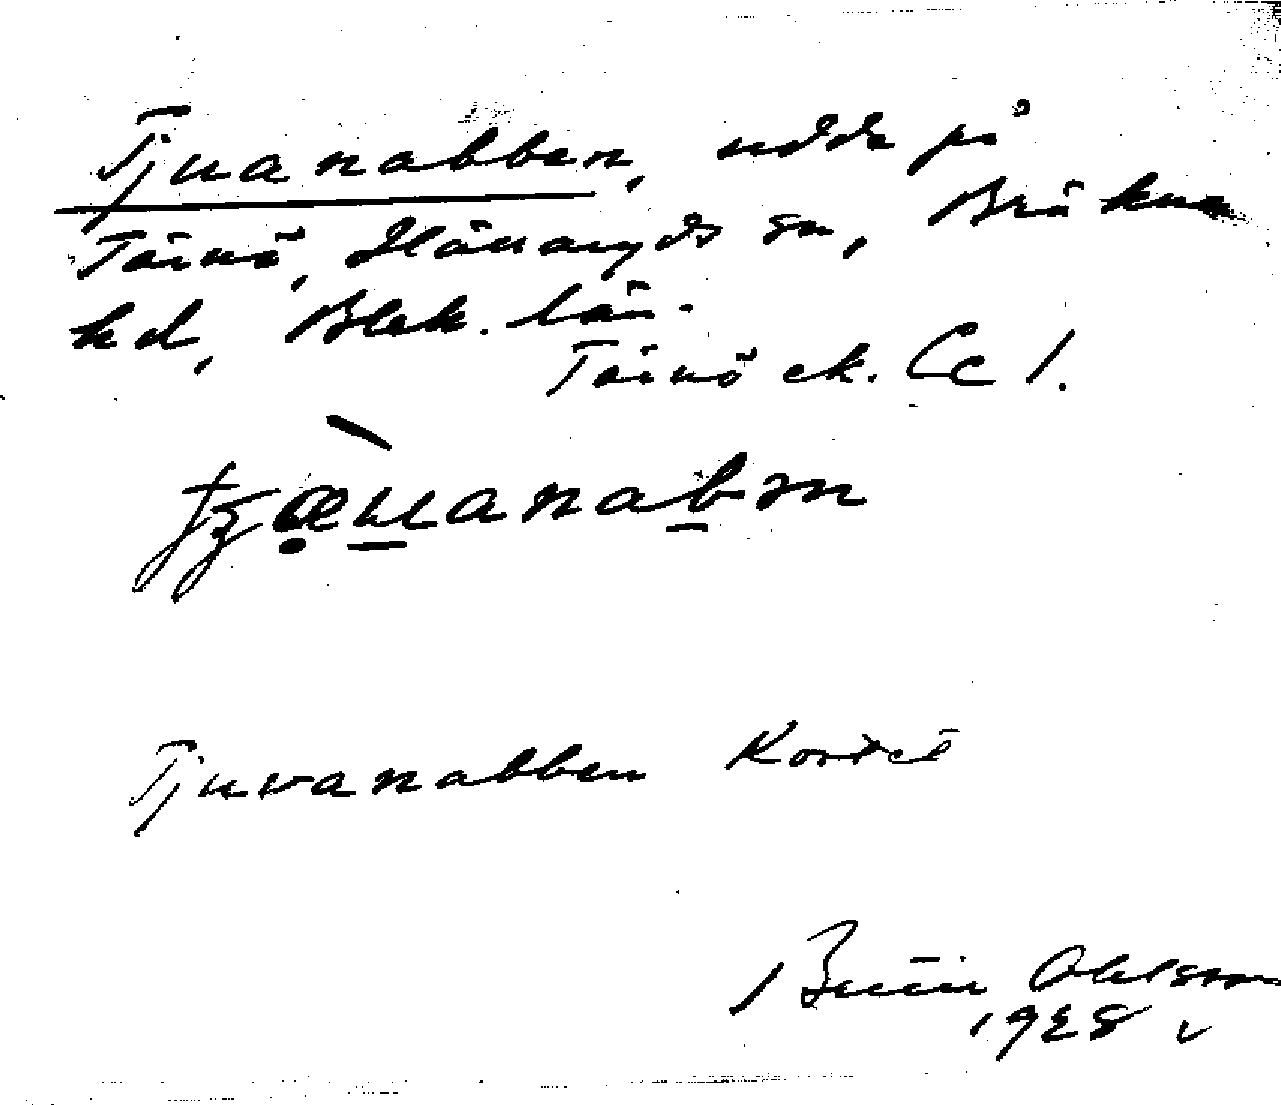 Tjuanabben, udde på
Tärnö, Hällaryds sn, Bräkne
hd, Blek. län.
Tärnö ek. Cc 1.
Tjuvanabben Kortet
Ohlsson
1928